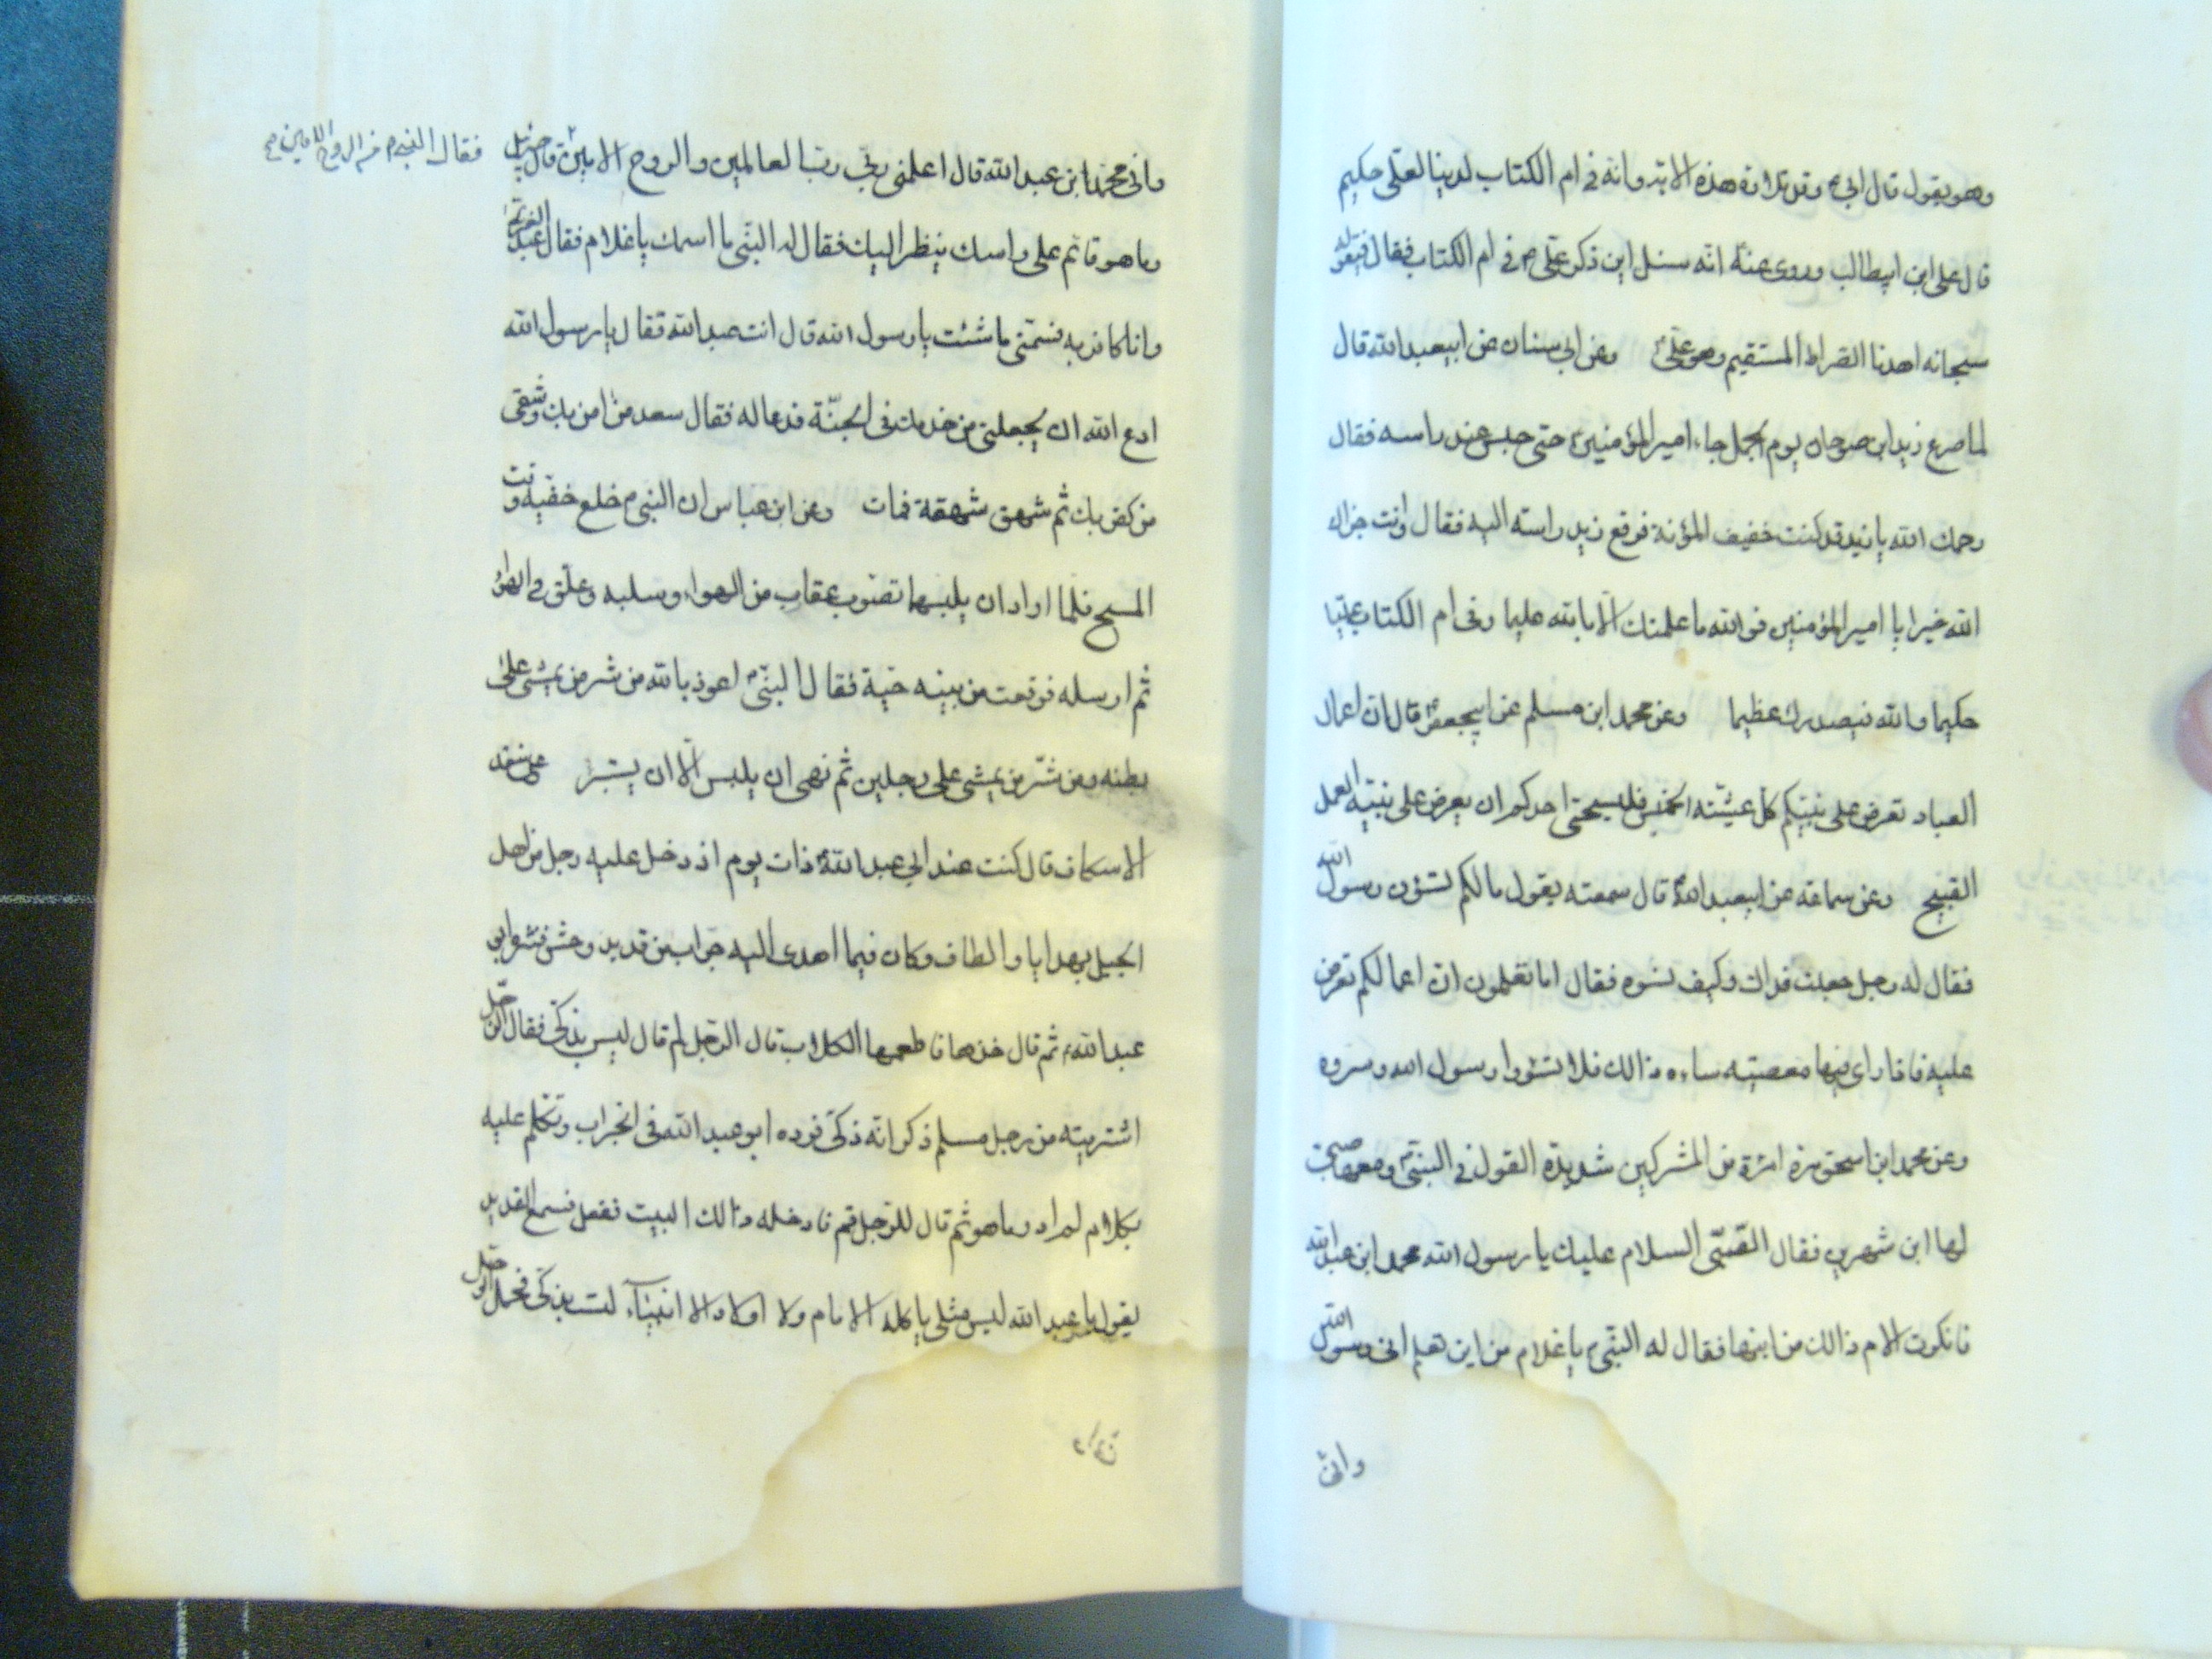 وهو يقول قال ابي وقد تلا هذه الاية وانه في ام الكتاب لدينا لعلى حكيم
قال على ابن ابيطالب وروى عنه انه سئل اين ذكر على في ام الكتاب فقال في قوله
سبحانه اهدنا الصراط المستقيم وهو على وعن ابي سنان عن ابيعبد الله قال
لما صرع زيد ابن صوحان يوم الجمل جاء امير المؤمنين حتى جلس عند راسه فقال
رحمك الله يا زيد قد كنت خفيف المؤنة فرفع زيد راسه اليه فقال وانت جزاك
الله خيرا يا امير المؤمنين فوالله ما علمتك الا بالله عليما وفى ام الكتاب عليا
حكيما والله في صدرك عظيما وعن محمد ابن مسلم عن ابيجعفر قال ان اعمال
العباد تعرض على نبيكم كل عشية الخميس فليستحى احدكم ان يعرض على نبيه العمل
القبيح وعن سماعة عن ابيعبد الله قال سمعته يقول ما لكم تسؤن رسول الله
فقال له رجل جعلت فداك وكيف نسوه فقال اما تعلمون ان اعمالكم تعرض
عليه فاذا راى فيها معصية ساءه ذالك فلا تسؤوا رسول الله وسروه
وعن محمد ابن اسحق مرة امرءة من المشركين شديدة القول في النبي ومعها صبي
لها ابن شهرين فقال الصبي السلام عليك يا رسول الله محمد ابن عبد الله
فانكرت الام ذالك من ابنها فقال له النبي يا غلام من اين تعلم انى رسول الله
وانى
وانى محمد ابن عبد الله قال اعلمنى ربي رب العالمين والروح الامين قال جبرئيل
فقال النبي من الروح الامين
وها هو قائم على راسك ينظر اليك فقال له النبي ما اسمك يا غلام فقال عبد العزى
وانا كافر به فسمنى ما شئت يا رسول الله قال انت عبد الله فقال يا رسول الله
ادع الله ان يجعلنى من خدمك فى الجنة فدعا له فقال سعد من امن بك وشقى
من كفر بك ثم شهق شهقة فمات وعن ابن عباس ان النبي خلع خفيه وقت
المسح فلما اراد ان يلبسهما تصوب عقاب من الهواء وسلبه وعلق في الهواء
ثم ارسله فوقعت من بينه حية فقال النبي اعوذ بالله من شر من يمشى على
بطنه ومن شر من يمشى على رجلين ثم نهى ان يلبس الا ان يستبر عن سعد
الاسكاف قال كنت عند ابي عبد الله ذات يوم اذ دخل عليه رجل من اهل
الجبل بهدايا والطاف وكان فيما اهدى اليه جراب من قديد وحش فنثره ابو
عبد الله ثم قال خذها فاطعمها الكلاب قال الرجل لم قال ليس بذكى فقال الرجل
اشتريته من رجل مسلم ذكر انه ذكى فرده ابو عبد الله فى الجراب وتكلم عليه
بكلام لم ادر ما هو ثم قال للرجل قم فادخله ذالك البيت ففعل فسمع القديد
يقول يا عبد الله ليس مثلى ياكله الامام ولا اولاد الانبياء لست بذكى فحمل الرجل